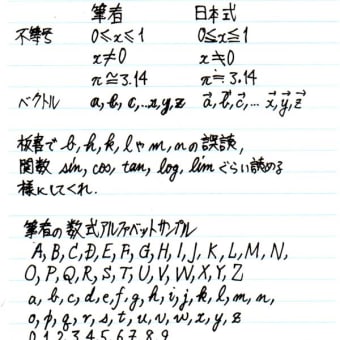 筆者 日本式
不等号 0≤x≤1 0≦x≦1
x≠0 x≒0
π≅3.14 π≒3.14
ベクトル a, b, c, …x, y, z a⃗, b⃗, c⃗, … x⃗, y⃗, z⃗
板書で b, h, k, l や m, n の誤読,
関数 sin, cos, tan, log, lim ぐらい読める
様にしてくれ.
筆者の数式アルファベットサンプル
A, B, C, D, E, F, G, H, I, J, K, L, M, N,
O, P, Q, R, S, T, U, V, W, X, Y, Z
a, b, c, d, e, f, g, h, i, j, k, l, m, n,
o, p, q, r, s, t, u, v, w, x, y, z
0, 1, 2, 3, 4, 5, 6, 7, 8, 9